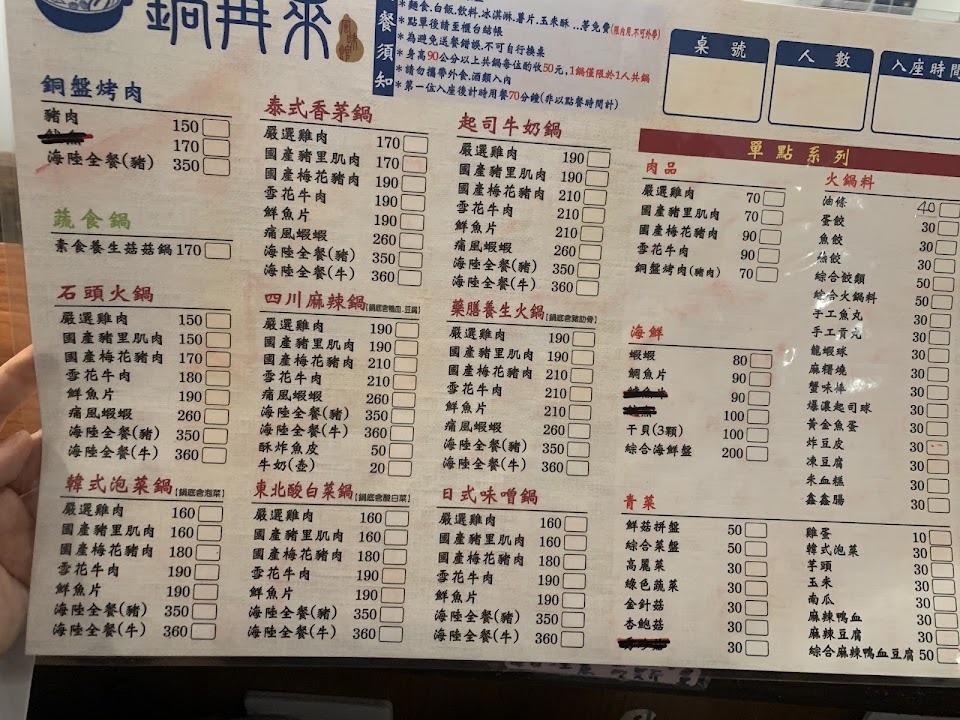 鍋再來
用餐須知
*麵食.白飯.飲料.冰淇淋.薯片.玉米酥...等免費(限內用.不可外帶)
*點單後請至櫃台結帳
*為避免送餐錯誤.不可自行換桌
*身高90公分以上共鍋每位酌收50元.1鍋僅限於1人共鍋
*請勿攜帶外食.酒類入內
*第一位入座後計時用餐70分鐘(非以點餐時間計)
桌號
人數
入座時間
銅盤烤肉
豬肉 150
170
海陸全餐(豬) 350
蔬食鍋
素食養生菇菇鍋 170
石頭火鍋
嚴選雞肉 150
國產豬里肌肉 150
國產梅花豬肉 170
雪花牛肉 180
鮮魚片 190
痛風蝦蝦 260
海陸全餐(豬) 350
海陸全餐(牛) 360
韓式泡菜鍋【鍋底含泡菜】
嚴選雞肉 160
國產豬里肌肉 160
國產梅花豬肉 180
雪花牛肉 190
鮮魚片 190
海陸全餐(豬) 350
海陸全餐(牛) 360
泰式香茅鍋
嚴選雞肉 170
國產豬里肌肉 170
國產梅花豬肉 190
雪花牛肉 190
鮮魚片 190
痛風蝦蝦 260
海陸全餐(豬) 350
海陸全餐(牛) 360
四川麻辣鍋【鍋底含鴨血.豆腐】
嚴選雞肉 190
國產豬里肌肉 190
國產梅花豬肉 210
雪花牛肉 210
痛風蝦蝦 260
海陸全餐(豬) 350
海陸全餐(牛) 360
酥炸魚皮 50
牛奶(壺) 20
東北酸白菜鍋【鍋底含酸白菜】
嚴選雞肉 160
國產豬里肌肉 160
國產梅花豬肉 180
雪花牛肉 190
鮮魚片 190
海陸全餐(豬) 350
海陸全餐(牛) 360
起司牛奶鍋
嚴選雞肉 190
國產豬里肌肉 190
國產梅花豬肉 210
雪花牛肉 210
鮮魚片 210
痛風蝦蝦 260
海陸全餐(豬) 350
海陸全餐(牛) 360
藥膳養生火鍋【鍋底含豬肋骨】
嚴選雞肉 190
國產豬里肌肉 190
國產梅花豬肉 210
雪花牛肉 210
鮮魚片 210
痛風蝦蝦 260
海陸全餐(豬) 350
海陸全餐(牛) 360
日式味噌鍋
嚴選雞肉 160
國產豬里肌肉 160
國產梅花豬肉 180
雪花牛肉 190
鮮魚片 190
海陸全餐(豬) 350
海陸全餐(牛) 360
單點系列
肉品
嚴選雞肉 70
國產豬里肌肉 70
國產梅花豬肉 90
雪花牛肉 90
銅盤烤肉(豬肉) 70
海鮮
蝦蝦 80
鯛魚片 90
90
100
干貝(3顆) 100
綜合海鮮盤 200
青菜
鮮菇拼盤 50
綜合菜盤 50
高麗菜 30
綠色蔬菜 30
金針菇 30
杏鮑菇 30
30
火鍋料
油條 40
蛋餃 30
魚餃 30
燕餃 30
綜合餃類 50
綜合火鍋料 50
手工魚丸 30
手工貢丸 30
龍蝦球 30
麻糬燒 30
蟹味棒 30
爆漿起司球 30
黃金魚蛋 30
炸豆皮 30
凍豆腐 30
米血糕 30
鑫鑫腸 30
雞蛋 10
韓式泡菜 30
芋頭 30
玉米 30
南瓜 30
麻辣鴨血 30
麻辣豆腐 30
綜合麻辣鴨血豆腐 50